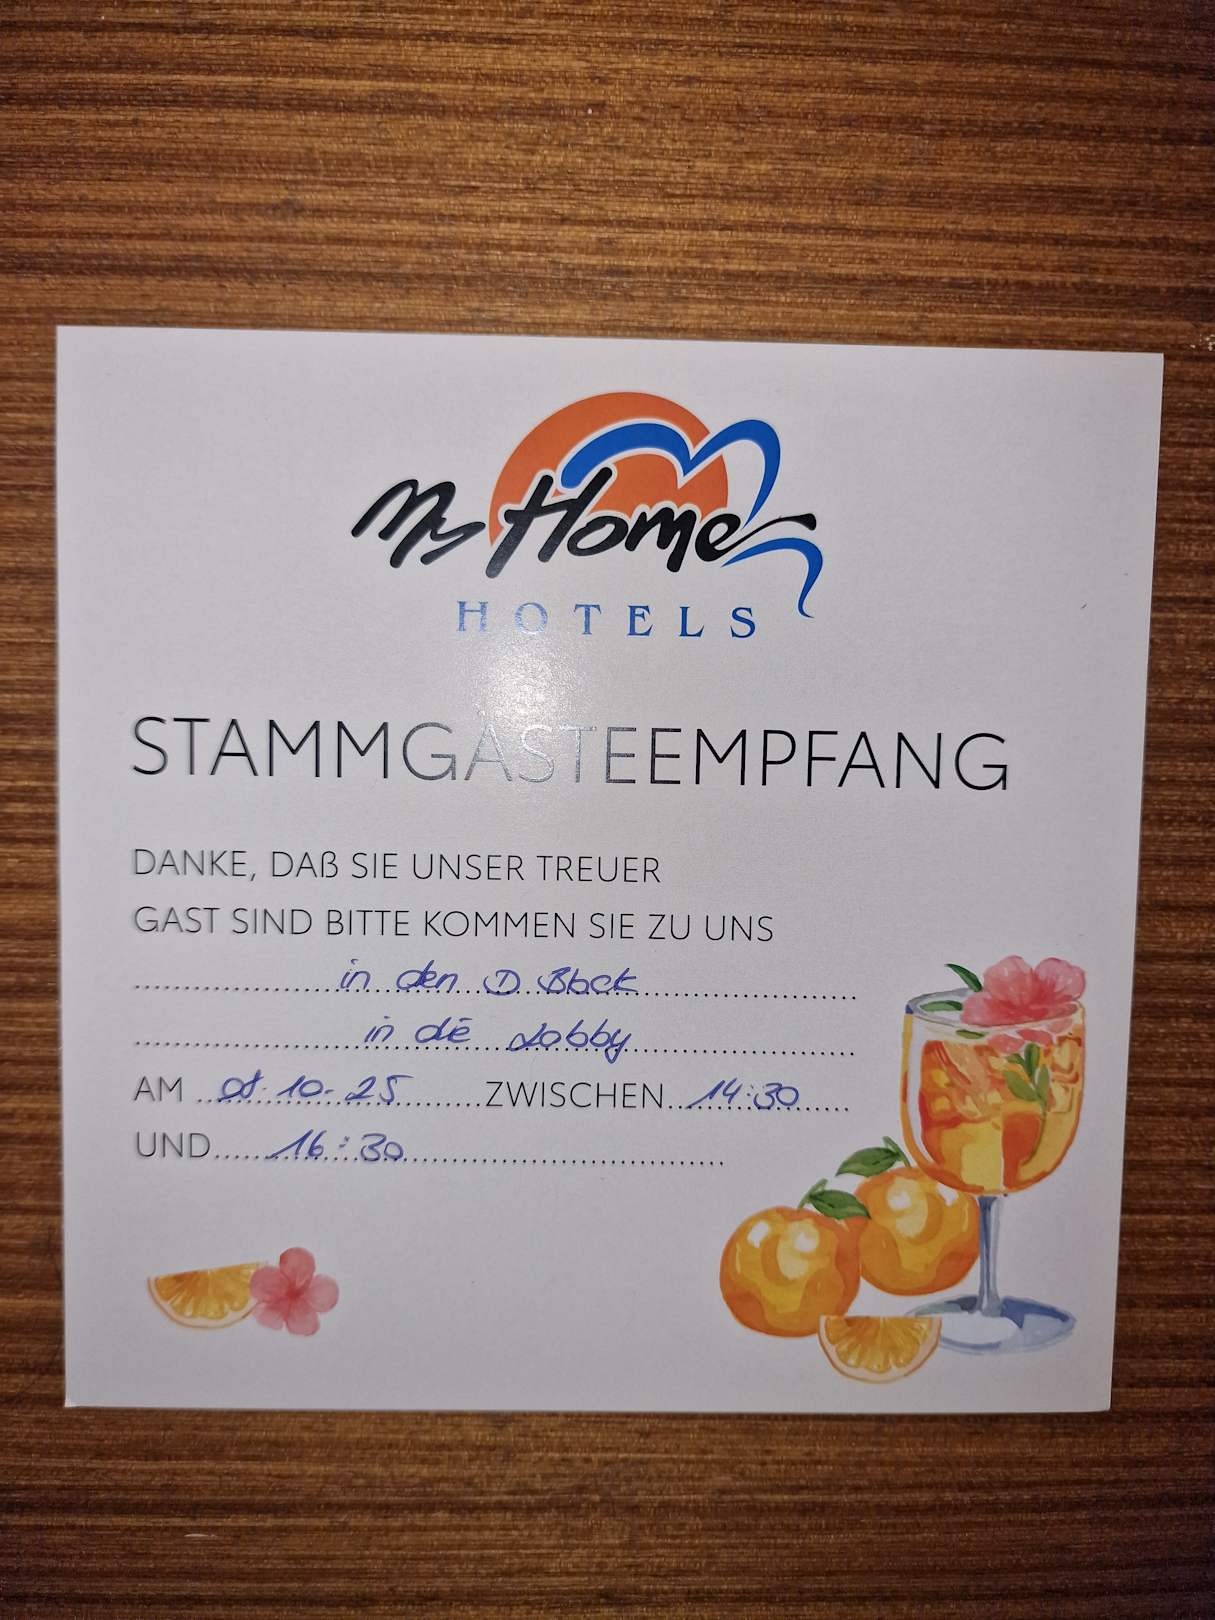 My Home
HOTELS
STAMMGÄSTEEMPFANG
DANKE, DAß SIE UNSER TREUER
GAST SIND BITTE KOMMEN SIE ZU UNS
in den D Block
in die Lobby
AM 08.10-25 ZWISCHEN 14:30
UND 16:30